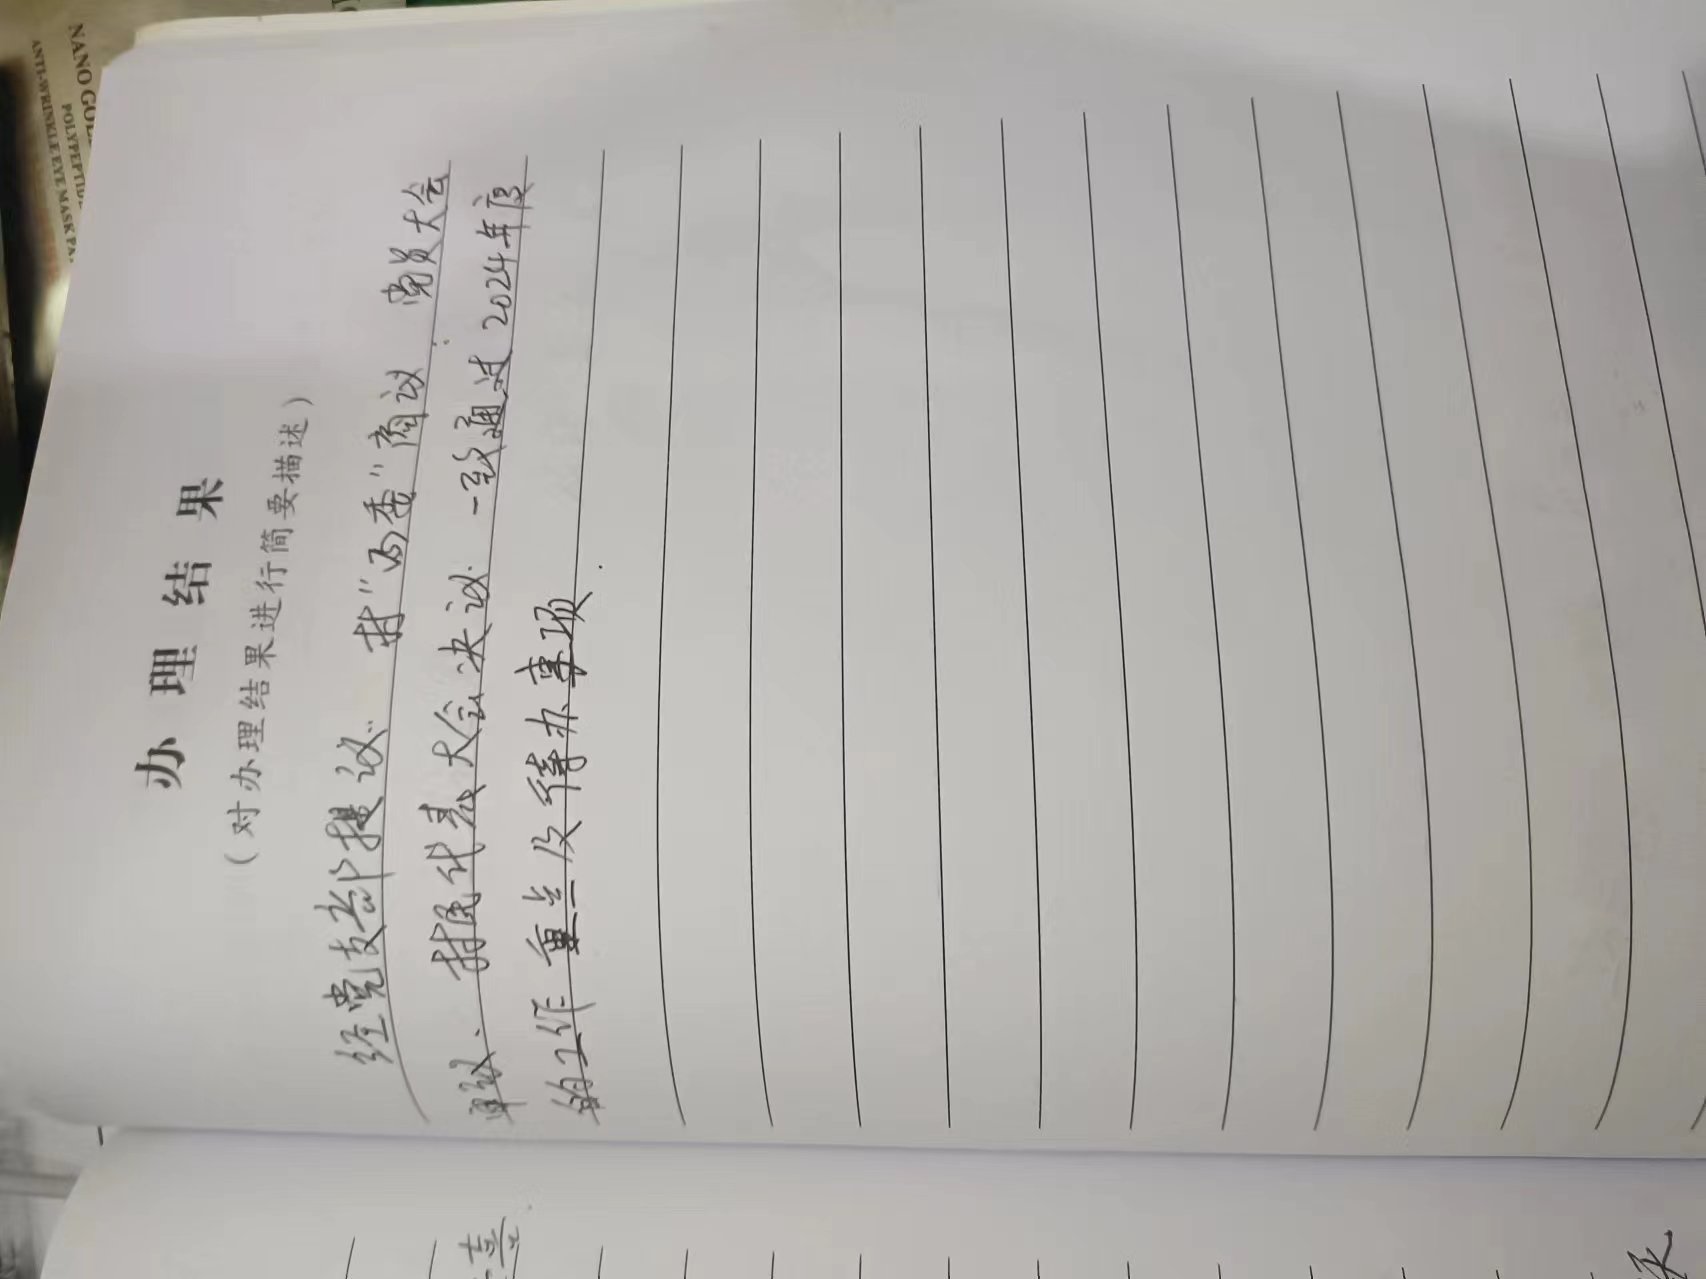 办理结果
（对办理结果进行简要描述）
经党支部提议、村“两委”商议、党员大会
审议、村民代表大会决议、一致通过2024年度
的工作重点及待办事项.
NANO GOL
ANTI-WRINKLE EYE MASK PA
POLYPEPTID